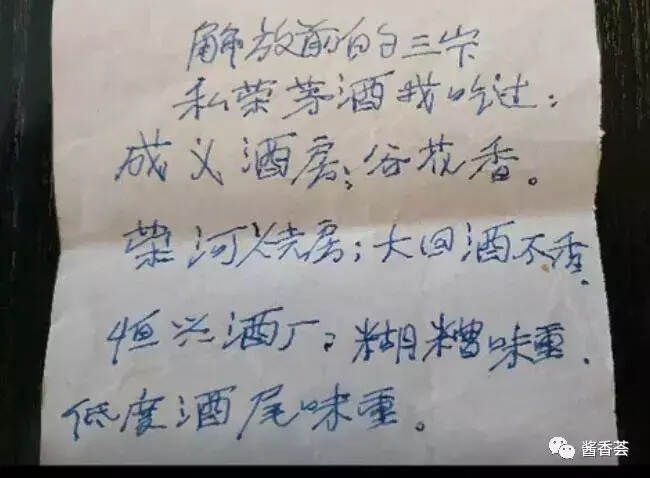 解放前的三家
私荣茅酒我吃过:
成义酒房;谷花香。
荣河烧房;大回酒不香.
恒兴酒厂:糊糟味重.
低度酒尾味重。
酱香荟